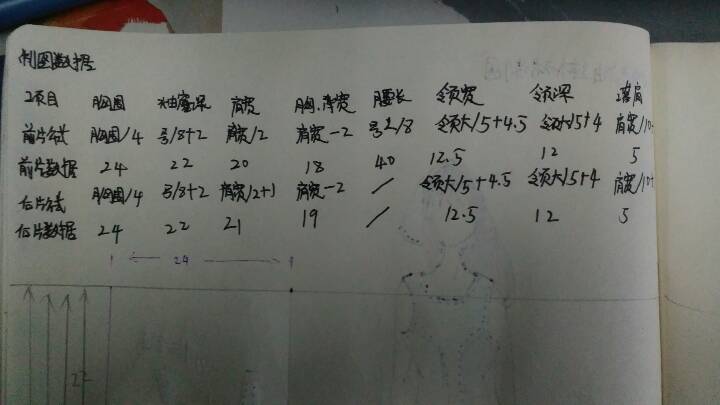 制图数据
项目 胸围 袖窿深 肩宽 胸.背宽 腰长 领宽 领深 落肩
前片公式 胸围/4 号/8+2 肩宽/2 肩宽-2 号/8 领大/5+4.5 领大/5+4 肩宽/10
前片数据 24 22 20 18 40 12.5 12 5
后片公式 胸围/4 号/8+2 肩宽/2+1 肩宽-2 / 领大/5+4.5 领大/5+4 肩宽/10+
后片数据 24 22 21 19 / 12.5 12 5
24
22